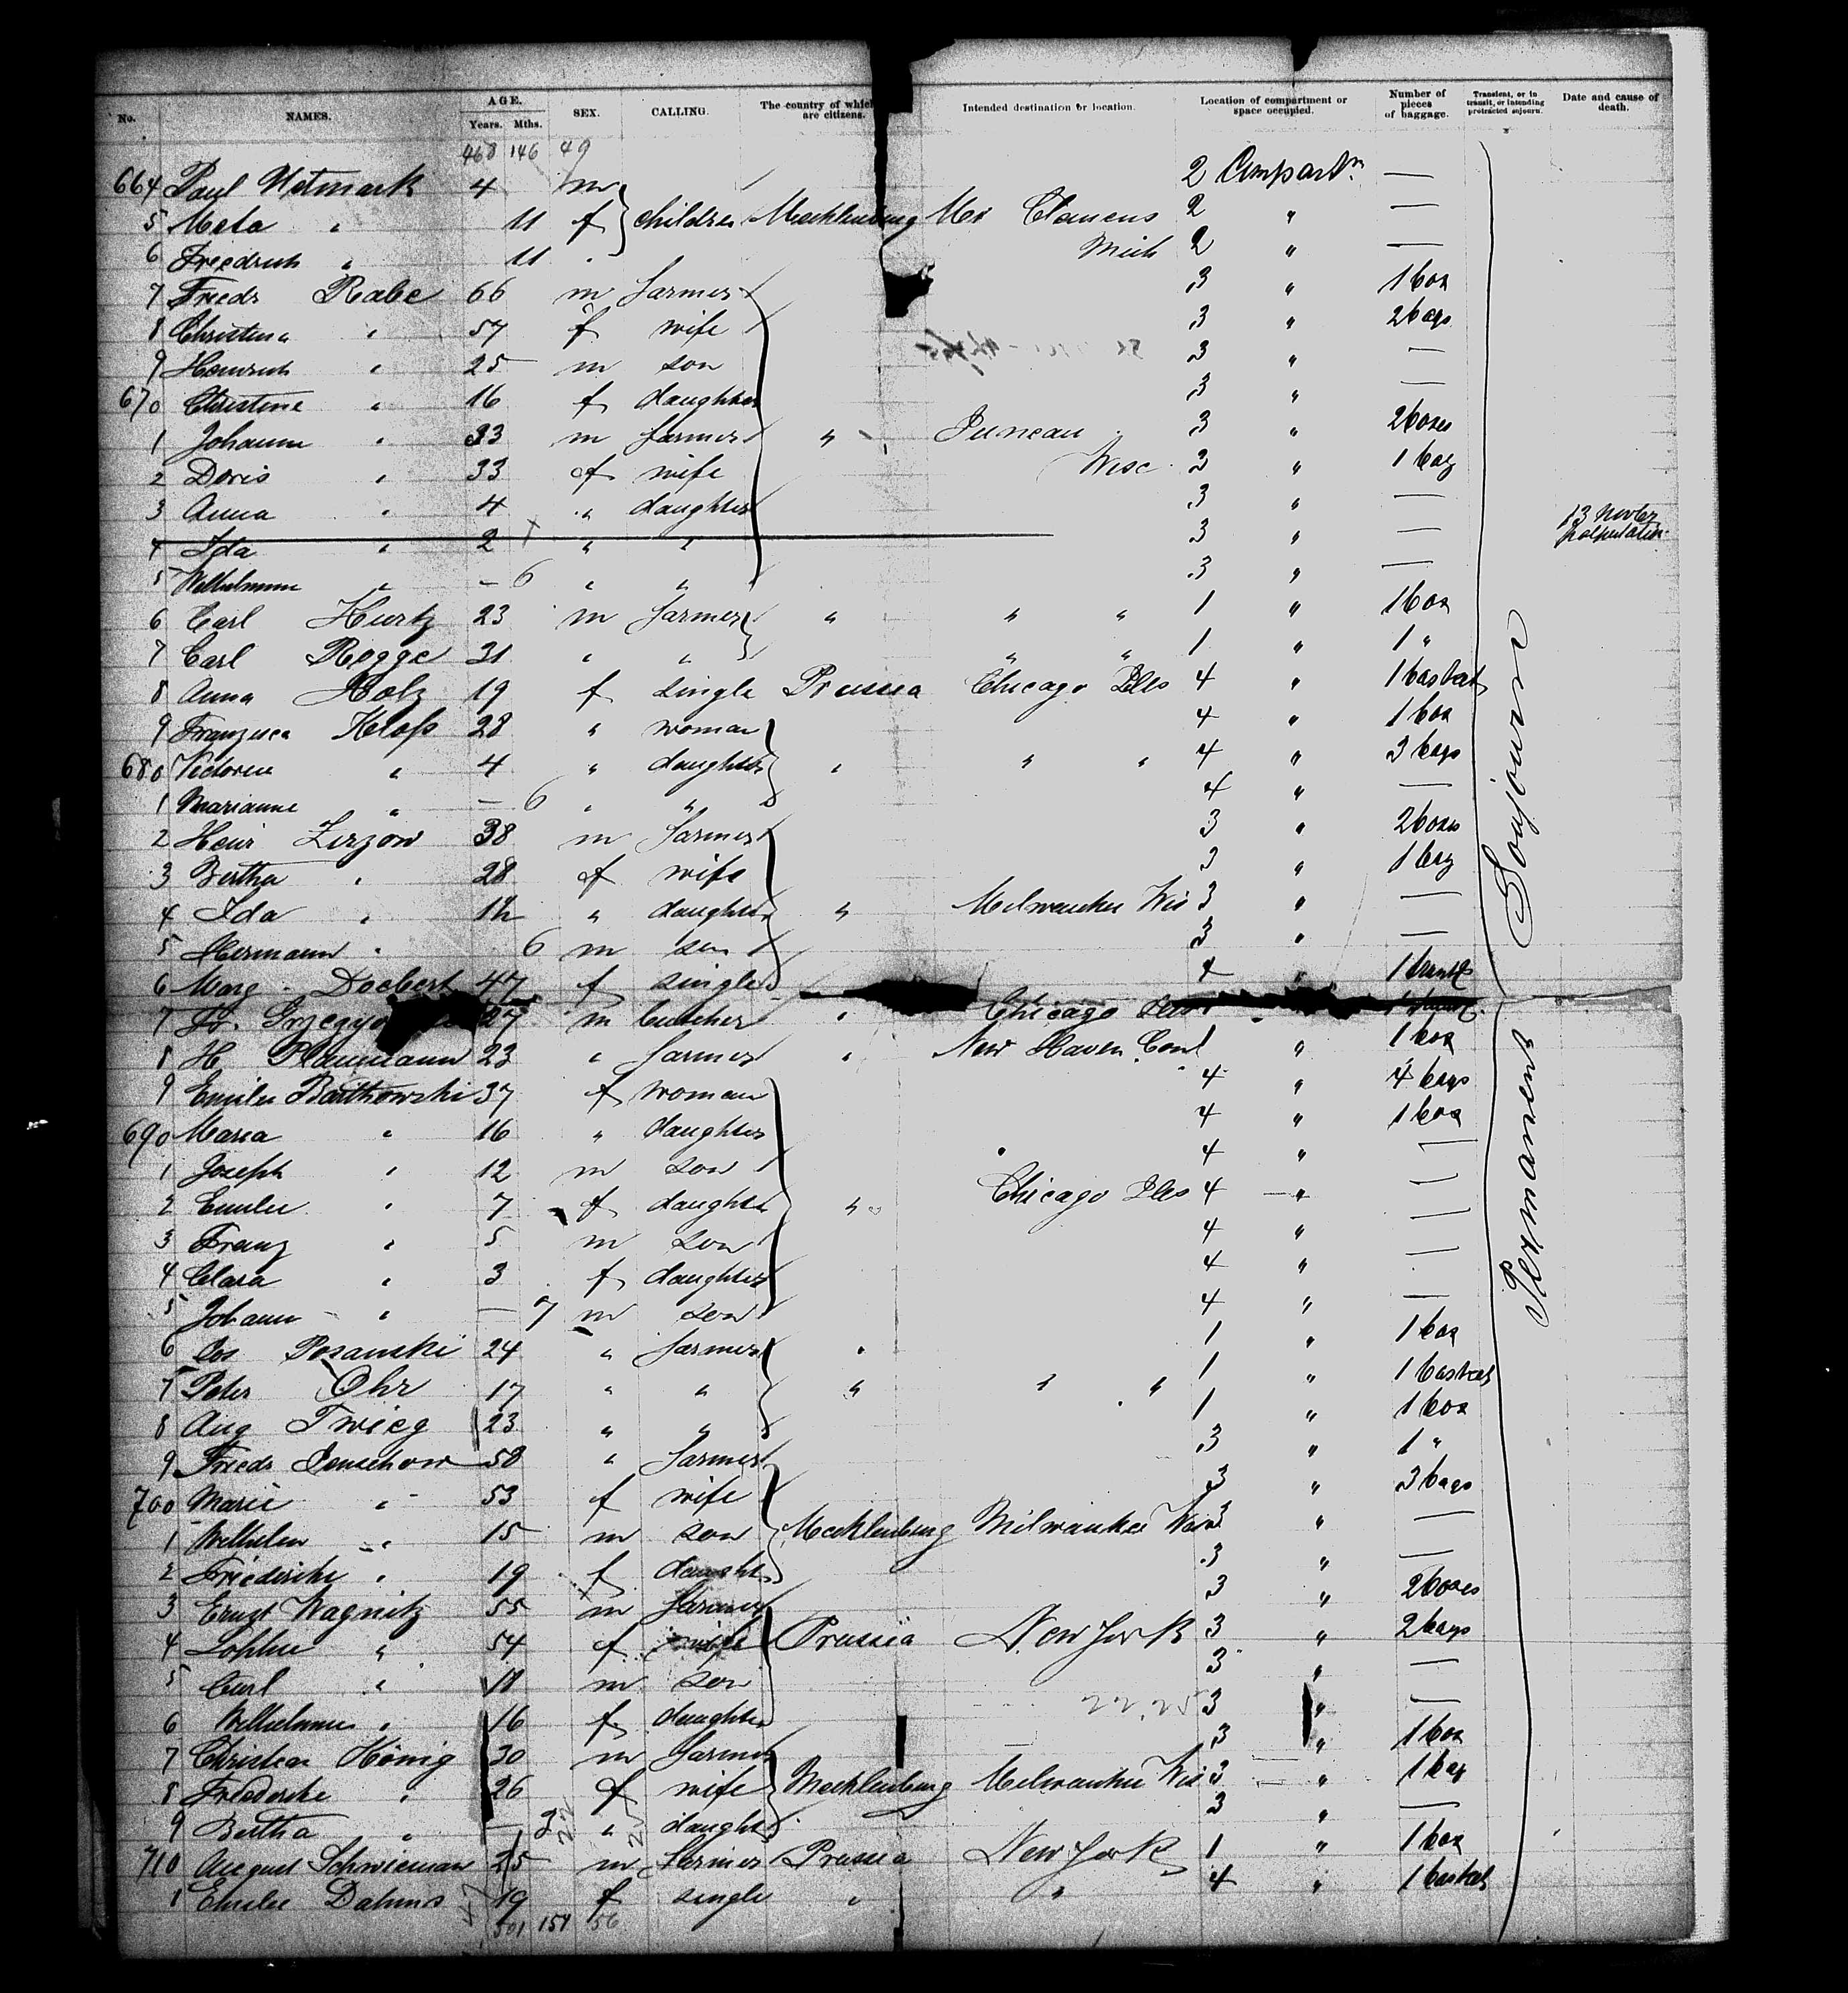 No. NAMES. AGE. Years. Mths. SEX. CALLING. The country of which are citizens. Intended destination or location. Location of compartment or space occupied. Number of pieces of baggage. Transient, or in transit, or intending protracted sojourn. Date and cause of death.
468 146 49
664 Paul 4 m 2 Compartm —
5 Meta " 11 f children Mecklenburg Clemens 2 " —
6 Friedrich " 11 Mich 2 " —
7 Friedr Rabe 66 m farmer 3 " 1 box
8 Christina " 57 f wife 3 " 2 bags
9 Heinrich " 25 m son 3 " —
670 Christine " 16 f daughter 3 " —
1 Johann " 33 m farmer " Juneau 3 " 2 boxes
2 Doris " 33 f wife Wisc 3 " 1 bag
3 Anna " 4 " daughter 3 " —
4 Ida " 2 " " 3 " — 13 Novbr
5 Wilhelmine " — 6 " " 3 " —
6 Carl Kurtz 23 m farmer " " " 1 " 1 box
7 Carl Rogge 31 " " " " 1 " 1 "
8 Anna Holz 19 f single Prussia Chicago Ills 4 " 1 basket
9 Franzisca Klofs 28 " woman 4 " 1 box
680 Victoria " 4 " daughter " " " 4 " 3 bags
1 Marianne " — 6 " " 4 " —
2 Heinr Zirzow 38 m farmer 3 " 2 boxes
3 Bertha " 28 f wife 3 " 1 bag
4 Ida " " daughter " Milwaukee Wis 3 " —
5 Hermann " 6 m son 3 " —
6 Marg. Doebert 47 f single 4 " 1 trunk
7 27 m butcher " Chicago Ills
8 H 23 " farmer " New Haven Conl 1 " 1 box
9 Emilie Bartkowski 37 f woman 4 " 4 bags
690 Maria " 16 " daughter 4 " 1 box
1 Joseph " 12 m son 4 " —
2 Emilie " 7 f daughter " Chicago Ills 4 " —
3 Franz " 5 m son 4 " —
4 Clara " 3 f daughter 4 " —
5 Johann " — 7 m son 4 " —
6 Jos Posanski 24 " farmer " 1 " 1 box
7 Peter Ohr 17 " " " " " 1 " 1 basket
8 Aug Twieg 23 " " 1 " 1 box
9 Friedr 58 " farmer 3 " 1 "
700 Marie " 53 f wife 3 " 3 bags
1 Wilhelm " 15 m son Mecklenburg Milwaukee Wis 3 " —
2 Friederike " 19 f daught 3 " —
3 Ernst Wagnitz 55 m farmer 3 " 2 boxes
4 Sophie " 54 f wife Prussia New York 3 " 2 bags
5 Carl " m son 3 " —
6 Wilhelmine " 16 f daughter 3 " —
7 Christian König 30 m farmer 3 " 1 box
8 Friederike " 26 f wife Mecklenburg Milwaukee Wis 3 " 1 bag
9 Bertha " — " daught 3 " —
710 August Schwieman 25 m farmer Prussia New York 1 " 1 box
1 Emilie Dahms 19 f single " " 4 " 1 basket
501 151 56
Permanent Soujourn